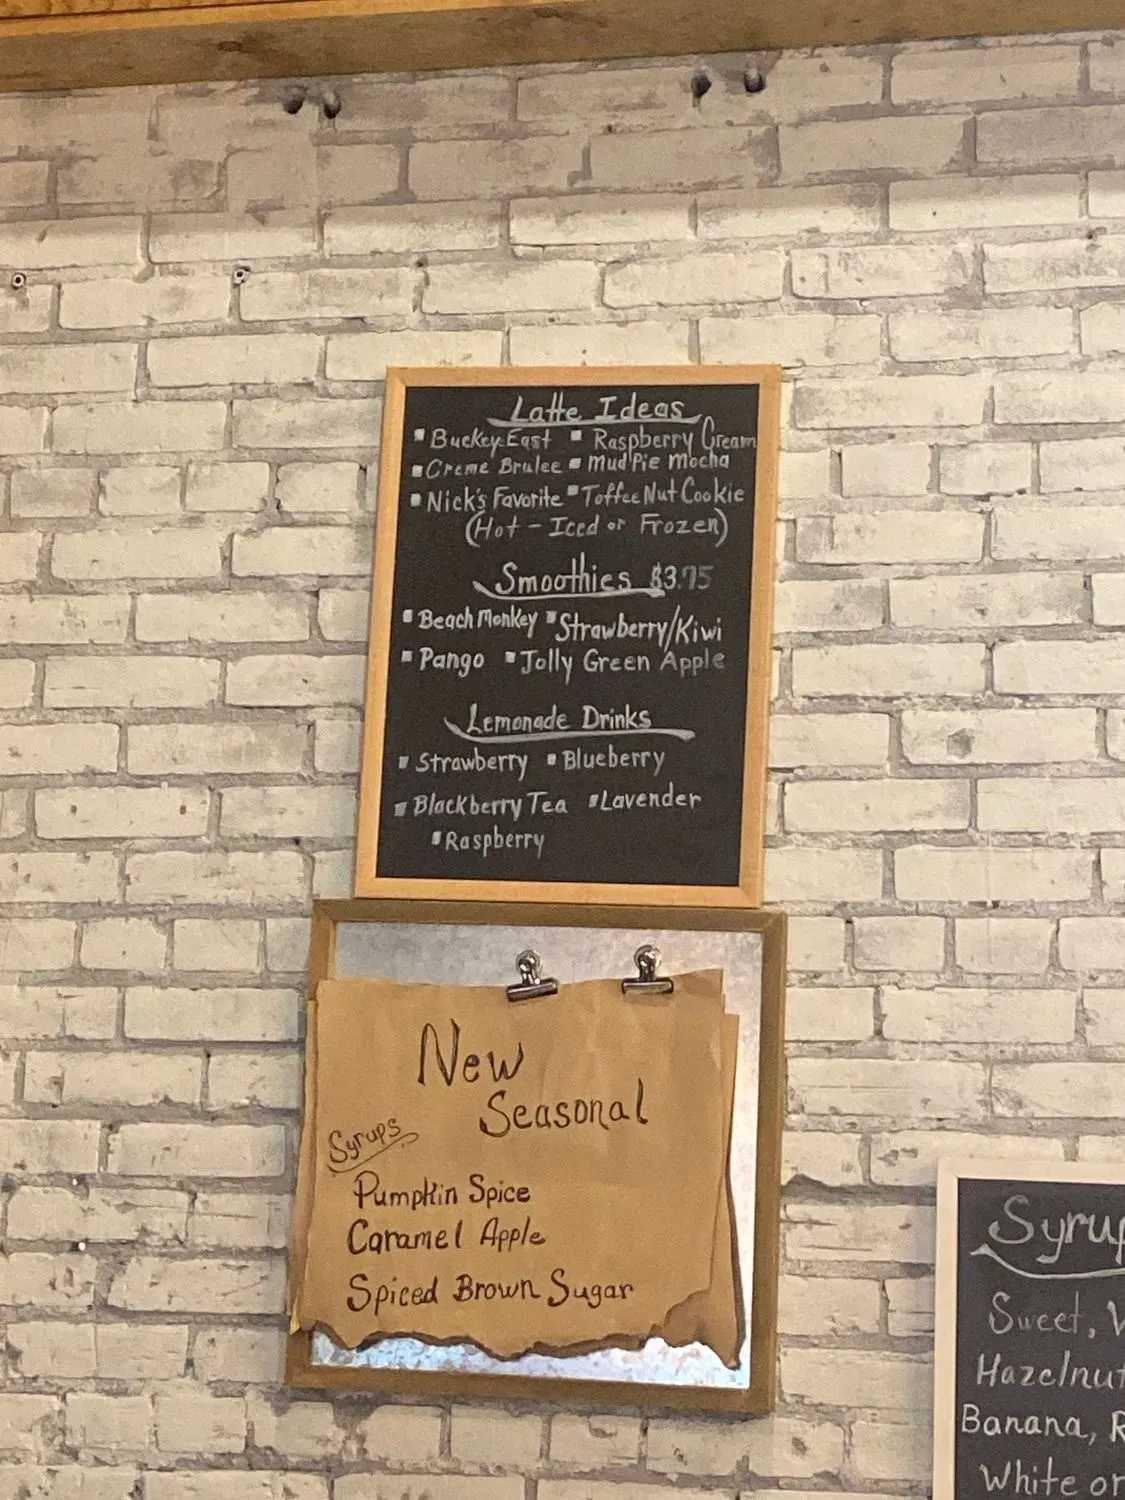 Latte Ideas
▪ Buckey East ▪ Raspberry Cream
▪ Creme Brulee ▪ Mud Pie Mocha
▪ Nick's Favorite ▪ Toffee Nut Cookie
(Hot - Iced or Frozen)
Smoothies $3.75
▪ Beach Monkey ▪ Strawberry/Kiwi
▪ Pango ▪ Jolly Green Apple
Lemonade Drinks
▪ Strawberry ▪ Blueberry
▪ Blackberry Tea ▪ Lavender
▪ Raspberry
New
Seasonal
Syrups
Pumpkin Spice
Caramel Apple
Spiced Brown Sugar
Syrup
Sweet, V
Hazelnut
Banana, R
White or